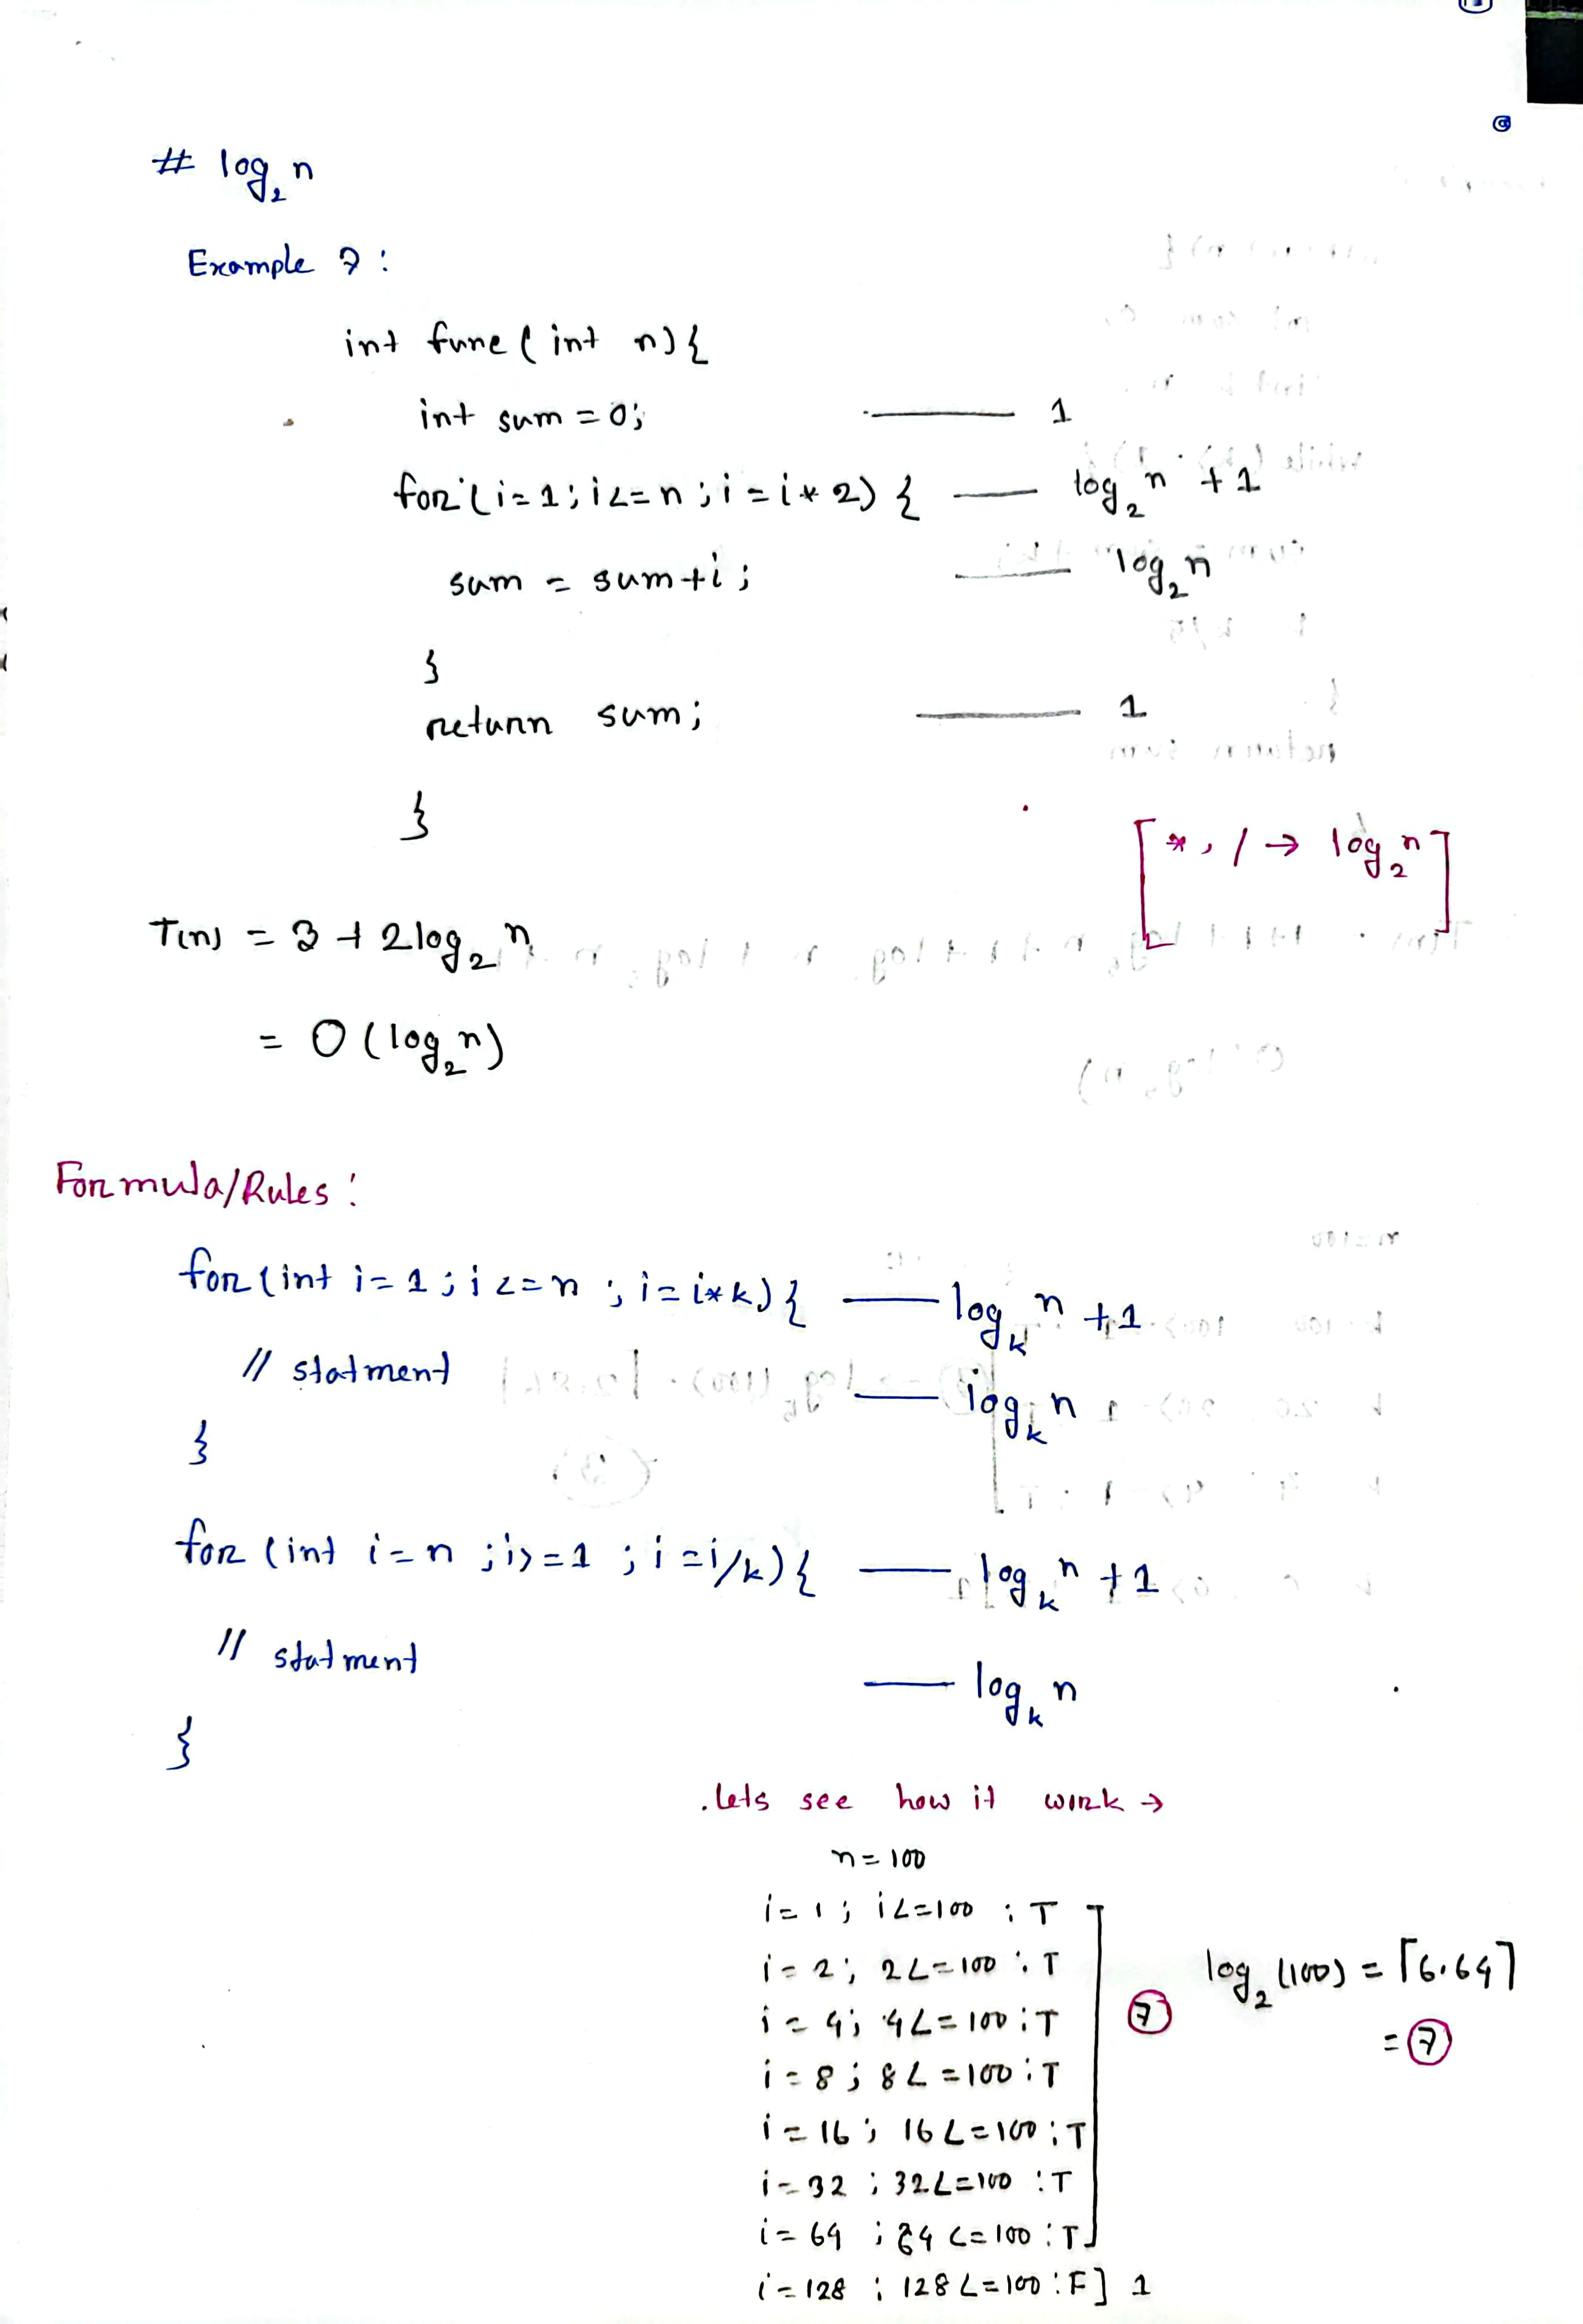 # log₂n
Example 7:
int func(int n){
int sum = 0; —— 1
for(i=1; i<=n; i=i*2) { —— log₂n + 1
sum = sum+i; —— log₂n
}
return sum; —— 1
}
[*, / → log₂n]
T(n) = 3 + 2log₂n
= O(log₂n)
Formula/Rules:
for(int i=1; i<=n; i=i*k){ —— logₖn + 1
// statment —— logₖn
}
for(int i=n; i>=1; i=i/k){ —— logₖn + 1
// statment —— logₖn
}
.lets see how it work →
n=100
i=1; i<=100 : T
i=2; 2<=100 : T
i=4; 4<=100 : T
i=8; 8<=100 : T
i=16; 16<=100 : T
i=32; 32<=100 : T
i=64; 64<=100 : T
7 log₂(100) = ⌈6.64⌉
= 7
i=128; 128<=100 : F] 1